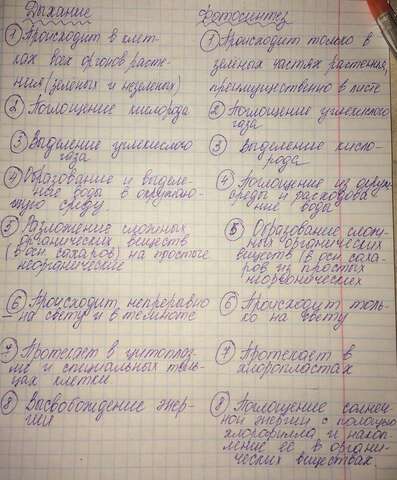 Дыхание
① Происходит в клет-
ках всех органов расте-
ния (зелёных и незелёных)
② Поглощение кислорода
③ Выделение углекислого
газа
④ Образование и выделе-
ние воды в окружаю-
щую среду.
⑤ Разложение сложных
органических веществ
(в осн. сахаров) на простые
неорганические
⑥ Происходит непрерывно
на свету и в темноте
⑦ Протекает в цитоплаз-
ме и специальных тель-
цах клетки
⑧ Высвобождение энер-
гии
Фотосинтез
① Происходит только в
зелёных частях растения,
преимущественно в листе
② Поглощение углекислого
газа
③ Выделение кисло-
рода
④ Поглощение из окруж.
среды и расходова
ние воды
⑤ Образование слож-
ных органических
веществ (в осн. саха-
ров из простых
неорганических
⑥ Происходит толь-
ко на свету
⑦ Протекает в
хлоропластах
⑧ Поглощение солнеч-
ной энергии с помощью
хлорофилла и накоп-
ление её в органи-
ческих веществах